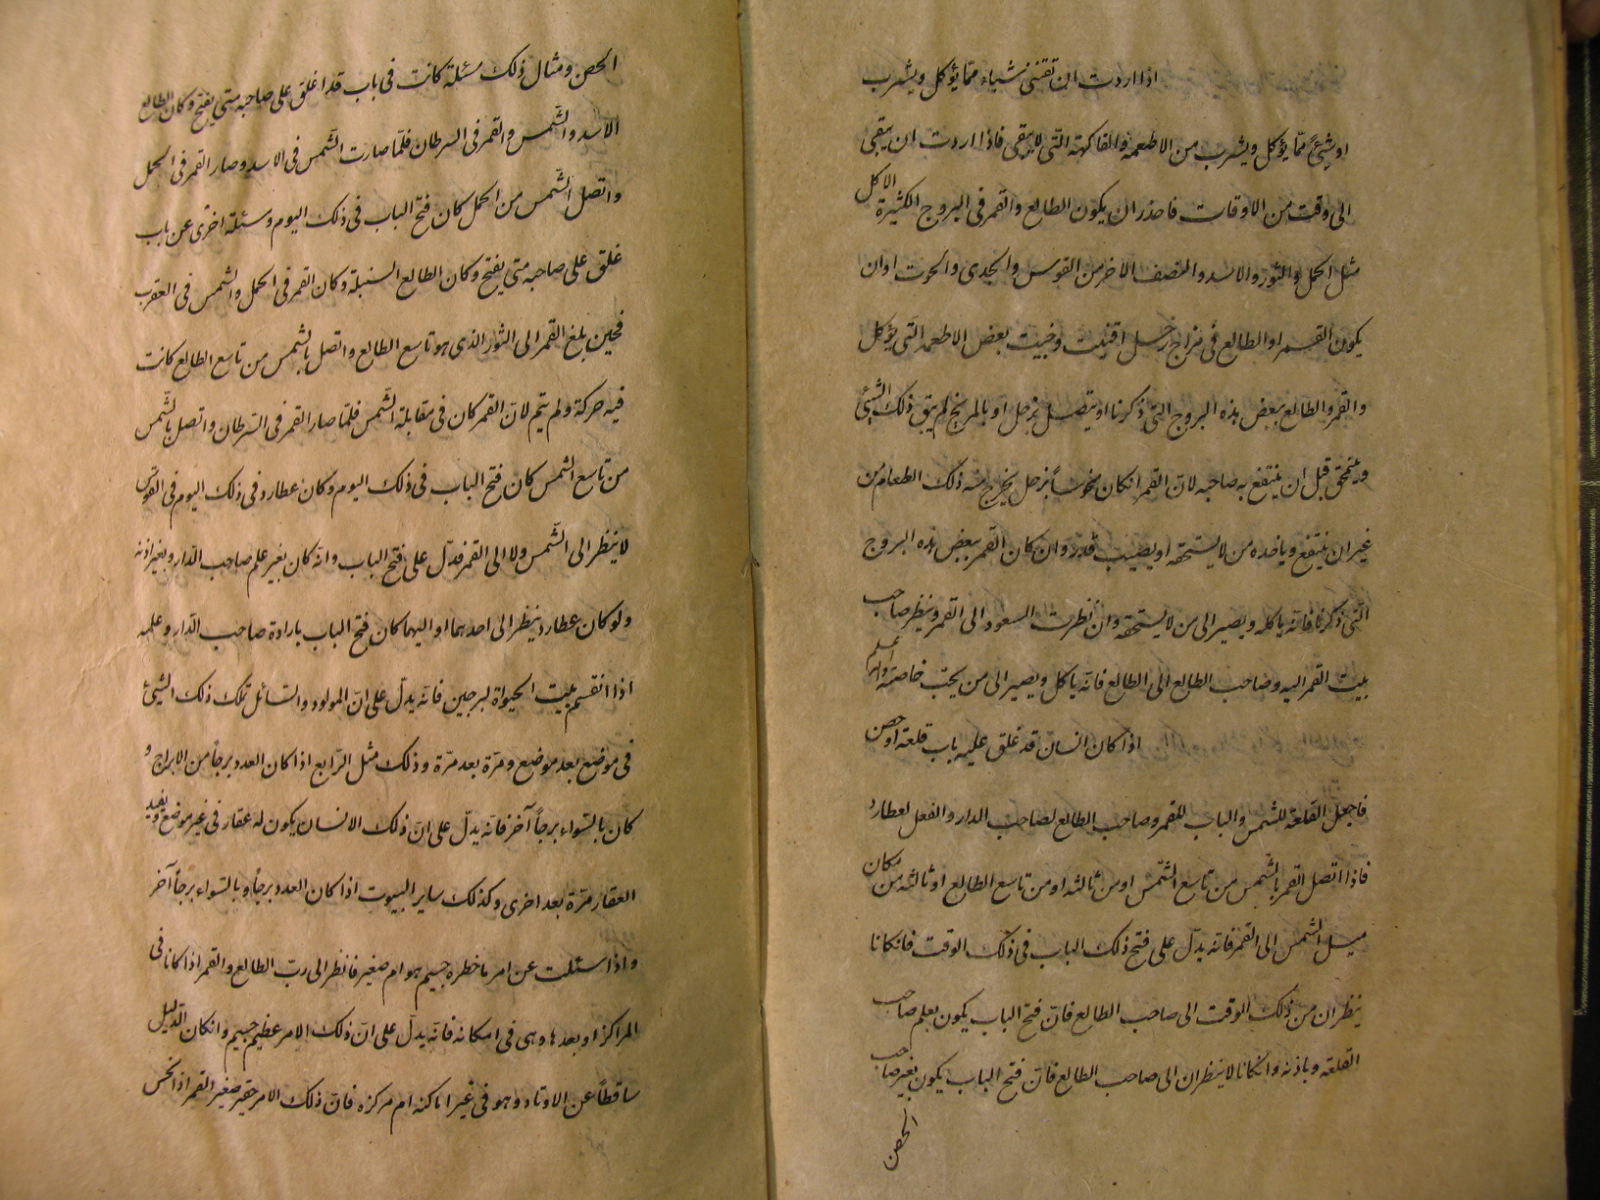 اذا اردت ان تقتنى شياء مما يؤكل ويشرب
او شئ مما يؤكل ويشرب من الاطعمة والفاكهة التى لا يبقى فاذا اردت ان يبقى
الى وقت من الاوقات فاحذر ان يكون الطالع والقمر فى البروج الكثيرة الاكل
مثل الحمل والثور والاسد والنصف الآخر من القوس والجدى والحوت اوان
يكون القمر او الطالع فى مزاج زحل اقنيت وخبيت بعض الاطعمة التى يؤكل
والقمر والطالع ببعض هذه البروج التى ذكرنا او يتصل بزحل او بالمريخ لم يبق ذلك الشئ
ويمتحق قبل ان ينتفع به صاحبه لان القمر انكان منحوساً بزحل يخرج منه ذلك الطعام من
غير ان ينتفع وياخذه من لا يستحقه او يصيب قدر وان كان القمر ببعض هذه البروج
التى ذكرنا فانه ياكله ويصير الى من لا يستحقه وان نظرت السعود الى القمر وينظر صاحب
بيت القمر اليه وصاحب الطالع الى الطالع فانه ياكل ويصير الى من يحب خاصته والله اعلم
اذا كان انسان قد غلق عليه باب قلعة او حصن
فاجعل القلعة للشمس والباب للقمر وصاحب الطالع لصاحب الدار والفعل لعطارد
فاذا اتصل القمر بالشمس من تاسع الشمس او من ثالثه او من تاسع الطالع او ثالثه من مكان
ميل الشمس الى القمر فانه يدل على فتح ذلك الباب فى ذلك الوقت فانكانا
ينظران من ذلك الوقت الى صاحب الطالع فان فتح الباب يكون بعلم صاحب
القلعة وباذنه وانكانا لا ينظران الى صاحب الطالع فان فتح الباب يكون بغير صاحب
الحصن
الحصن ومثال ذلك مسئلة كانت فى باب قد اغلق على صاحبه متى يفتح وكان الطالع
الاسد والشمس والقمر فى السرطان فلما صارت الشمس فى الاسد وصار القمر فى الحمل
واتصل الشمس من الحمل كان فتح الباب فى ذلك اليوم وسئلة اخرى عن باب
غلق على صاحبه متى يفتح وكان الطالع السنبلة وكان القمر فى الحمل والشمس فى العقرب
فحين بلغ القمر الى الثور الذى هو تاسع الطالع واتصل بالشمس من تاسع الطالع كانت
فيه حركة ولم يتم لان القمر كان فى مقابلة الشمس فلما صار القمر فى السرطان واتصل بالشمس
من تاسع الشمس كان فتح الباب فى ذلك اليوم وكان عطارد فى ذلك اليوم فى القوس
لا ينظر الى الشمس ولا الى القمر فدل على فتح الباب وانه كان بغير علم صاحب الدار وبغير اذنه
ولو كان عطارد ينظر الى احدهما او اليهما كان فتح الباب بارادة صاحب الدار وعلمه
اذا انقسم بيت الحيوة لبرجين فانه يدل على ان المولود والسائل تملك ذلك الشئ
فى موضع بعد موضع ومرة بعد مرة وذلك مثل الرابع اذا كان العدد برجاً من الابراج و
كان بالسواء برجاً آخر فانه يدل على ان ذلك الانسان يكون له عقار فى غير موضع ويفيد
العقار مرة بعد اخرى وكذلك ساير البيوت اذا كان العدد برجاً وبالسواء برجاً آخر
واذا سئلت عن امر ما خطره جسيم هو ام صغير فانظر الى رب الطالع والقمر اذا كانا فى
المراكز او بعدها وهى فى امكانه فانه يدل على ان ذلك الامر عظيم جسيم وانكان الدليل
ساقطاً عن الاوتاد وهو فى غير اماكنه ام مركزه فان ذلك الامر حقير صغير القمر اذا نحس